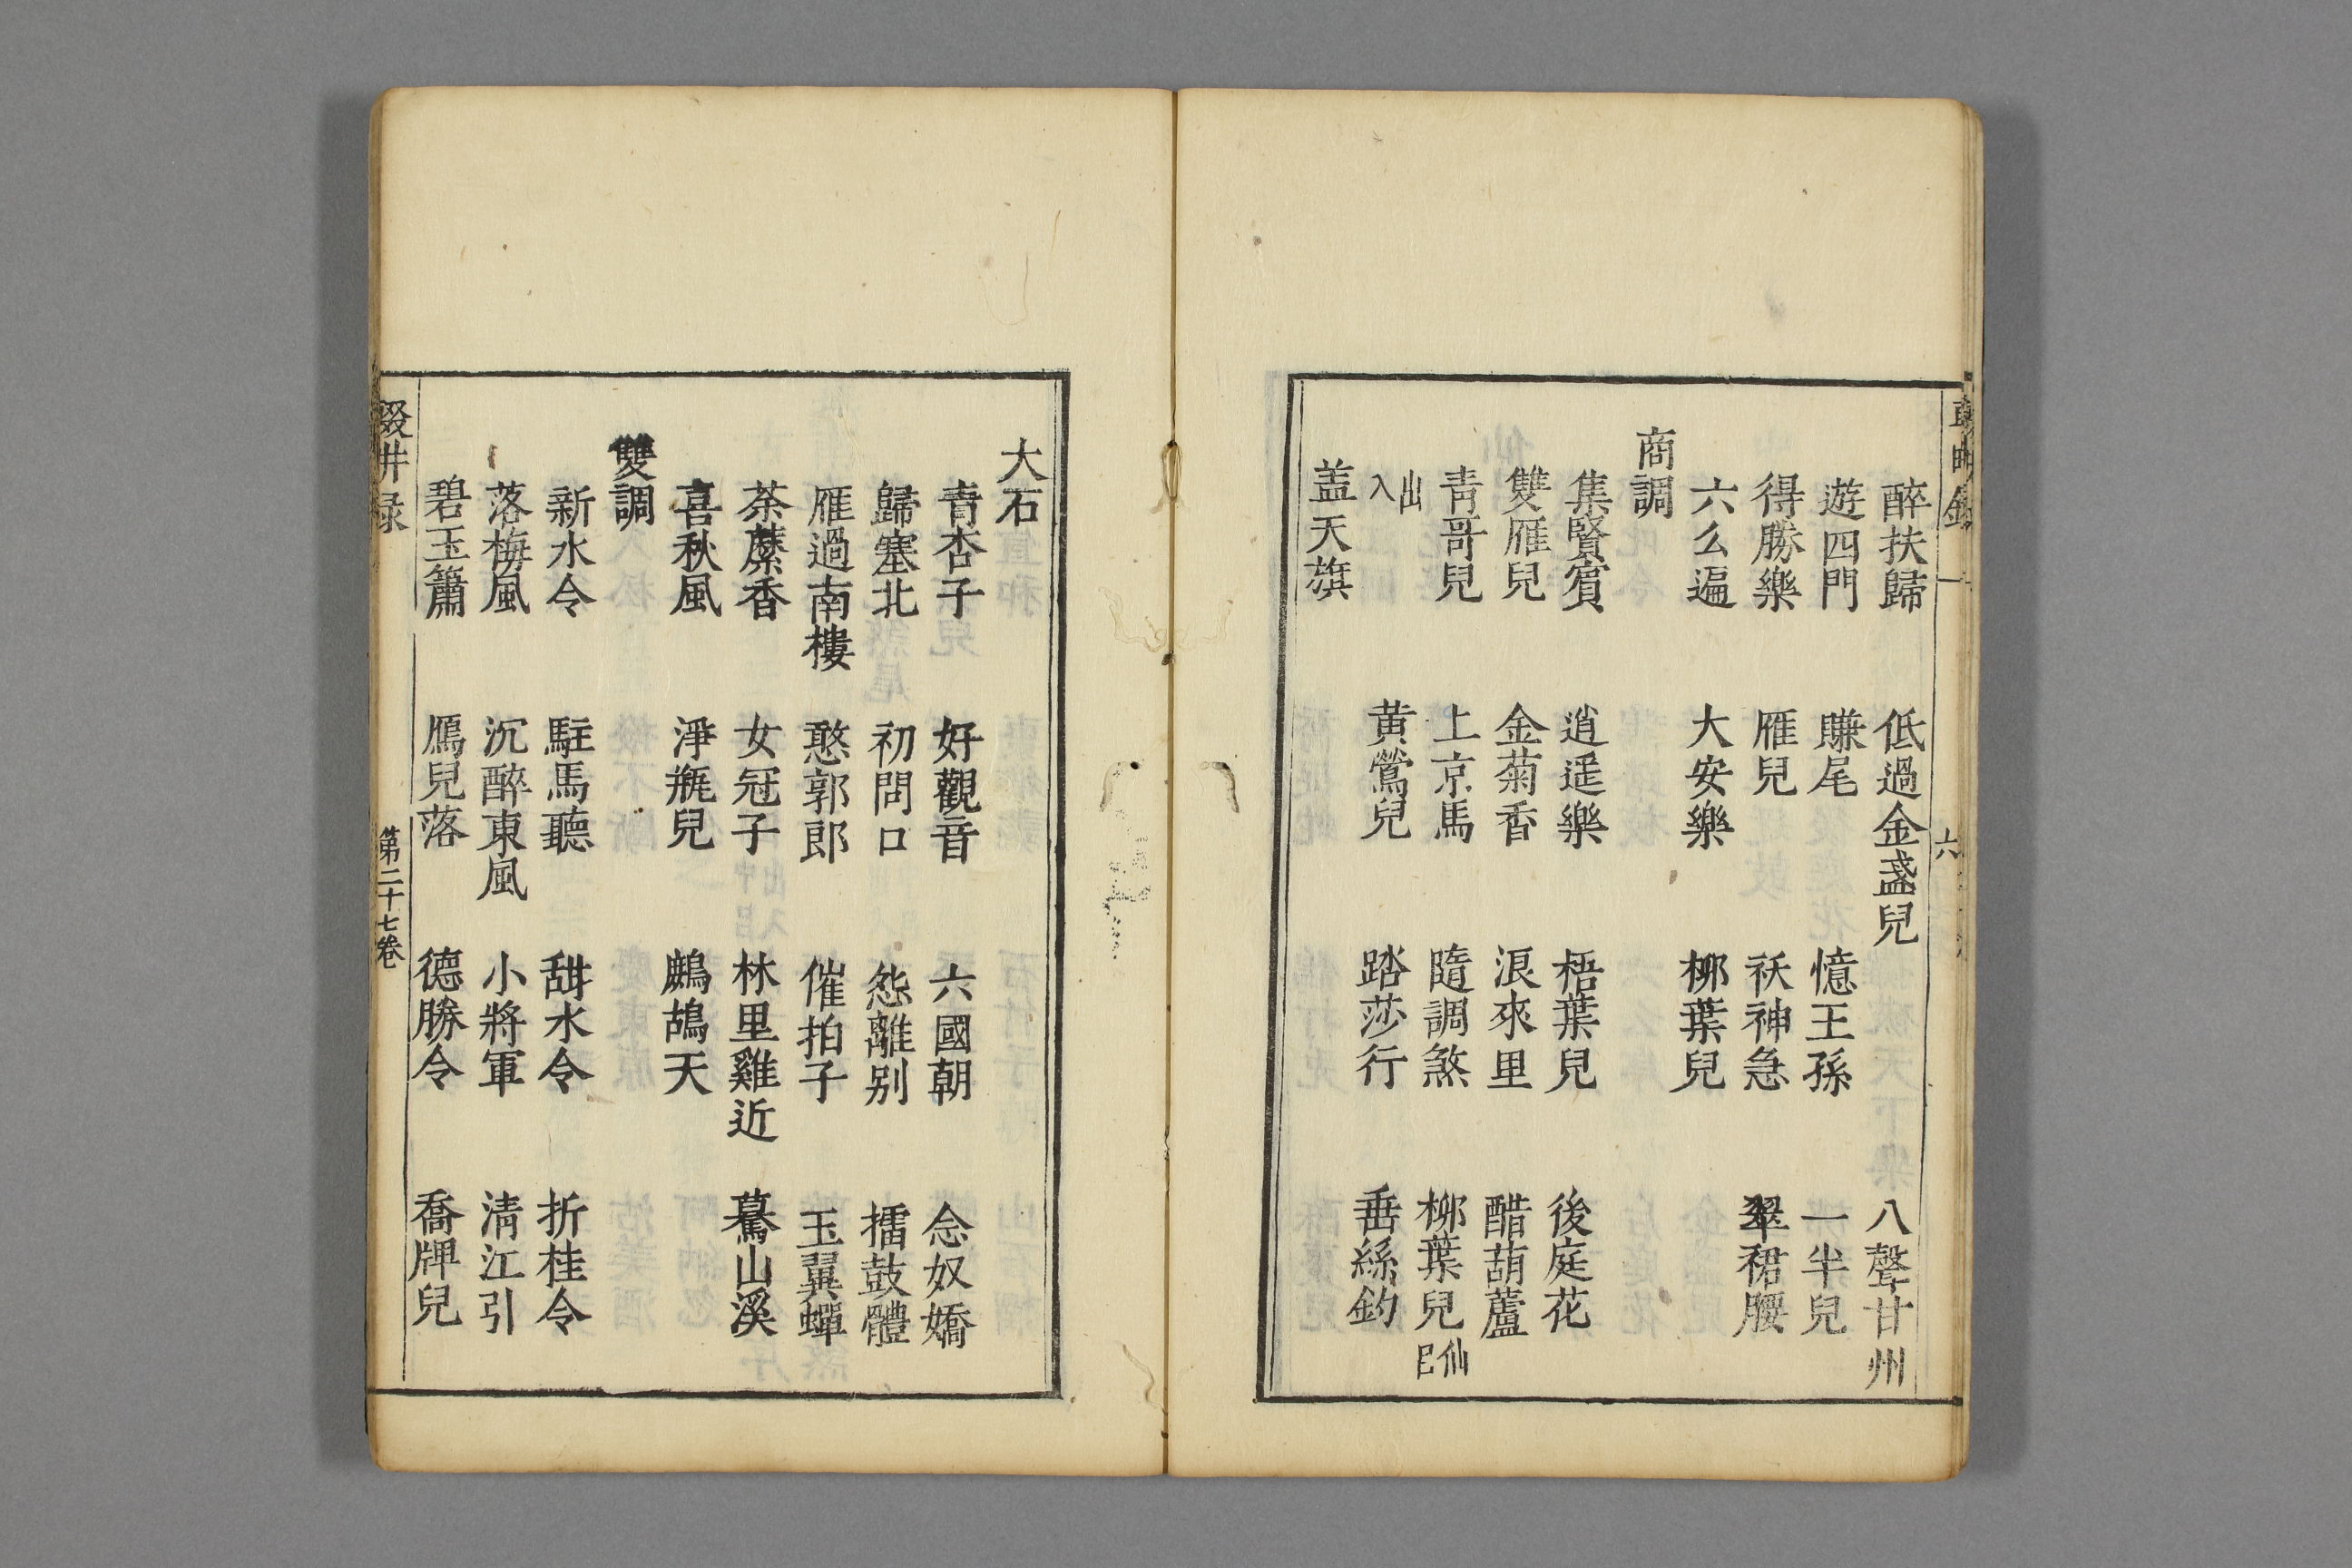 醉扶歸 低過金盞兒 八聲甘州
遊四門 賺尾 憶王孫 一半兒
得勝樂 雁兒 祆神急 翠裙腰
六么遍 大安樂 柳葉兒
商調
集賢賓 逍遥樂 梧葉兒 後庭花
雙雁兒 金菊香 浪來里 醋葫蘆
青哥兒 上京馬 隨調煞 柳葉兒 仙吕
出入 黄鶯兒 踏莎行 垂絲釣
盖天旗
六
大石
青杏子 好觀音 六國朝 念奴嬌
歸塞北 初問口 怨離别 擂鼓體
雁過南樓 憨郭郎 催拍子 玉翼蟬
荼䕷香 女冠子 林里雞近 驀山溪
喜秋風 淨瓶兒 鷓鴣天
雙調
新水令 駐馬聽 甜水令 折桂令
落梅風 沉醉東風 小將軍 清江引
碧玉簫 鴈兒落 德勝令 喬牌兒
輟畊録 第二十七卷